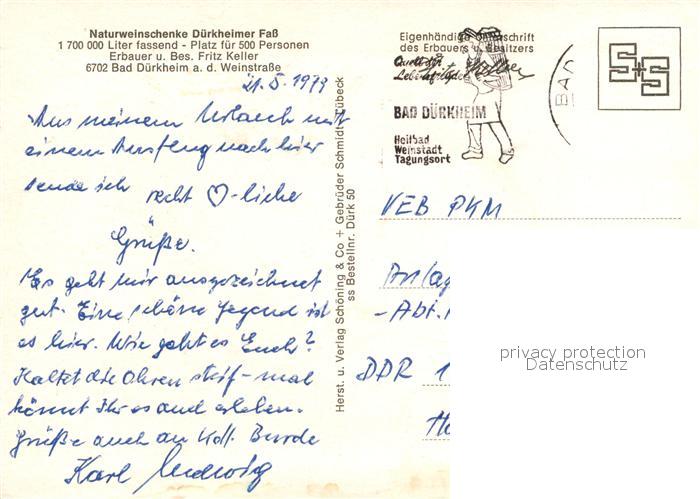 Naturweinschenke Dürkheimer Faß
1 700 000 Liter fassend - Platz für 500 Personen
Erbauer u. Bes. Fritz Keller
6702 Bad Dürkheim a. d. Weinstraße
21.5.1979
Aus meinem Urlaub mit
einem Ausflug nach hier
sende ich recht ♡-liche
Grüße.
Es geht mir ausgezeichnet
gut. Eine schöne Gegend ist
es hier. Wie geht es Euch?
Haltet die Ohren steif - mal
könnt Ihr es auch erleben.
Grüße auch an Koll. Burde
Karl Ludwig
Herst. u. Verlag Schöning & Co + Gebrüder Schmidt, Lübeck
ss Bestellnr. Dürk 50
Eigenhändige Unterschrift
des Erbauers u. Besitzers
Quell der
Lebensfreude
BAD DÜRKHEIM
Heilbad
Weinstadt
Tagungsort
BAD
S+S
VEB PKM
Anlag
-Abt.
DDR 1
privacy protection
Datenschutz